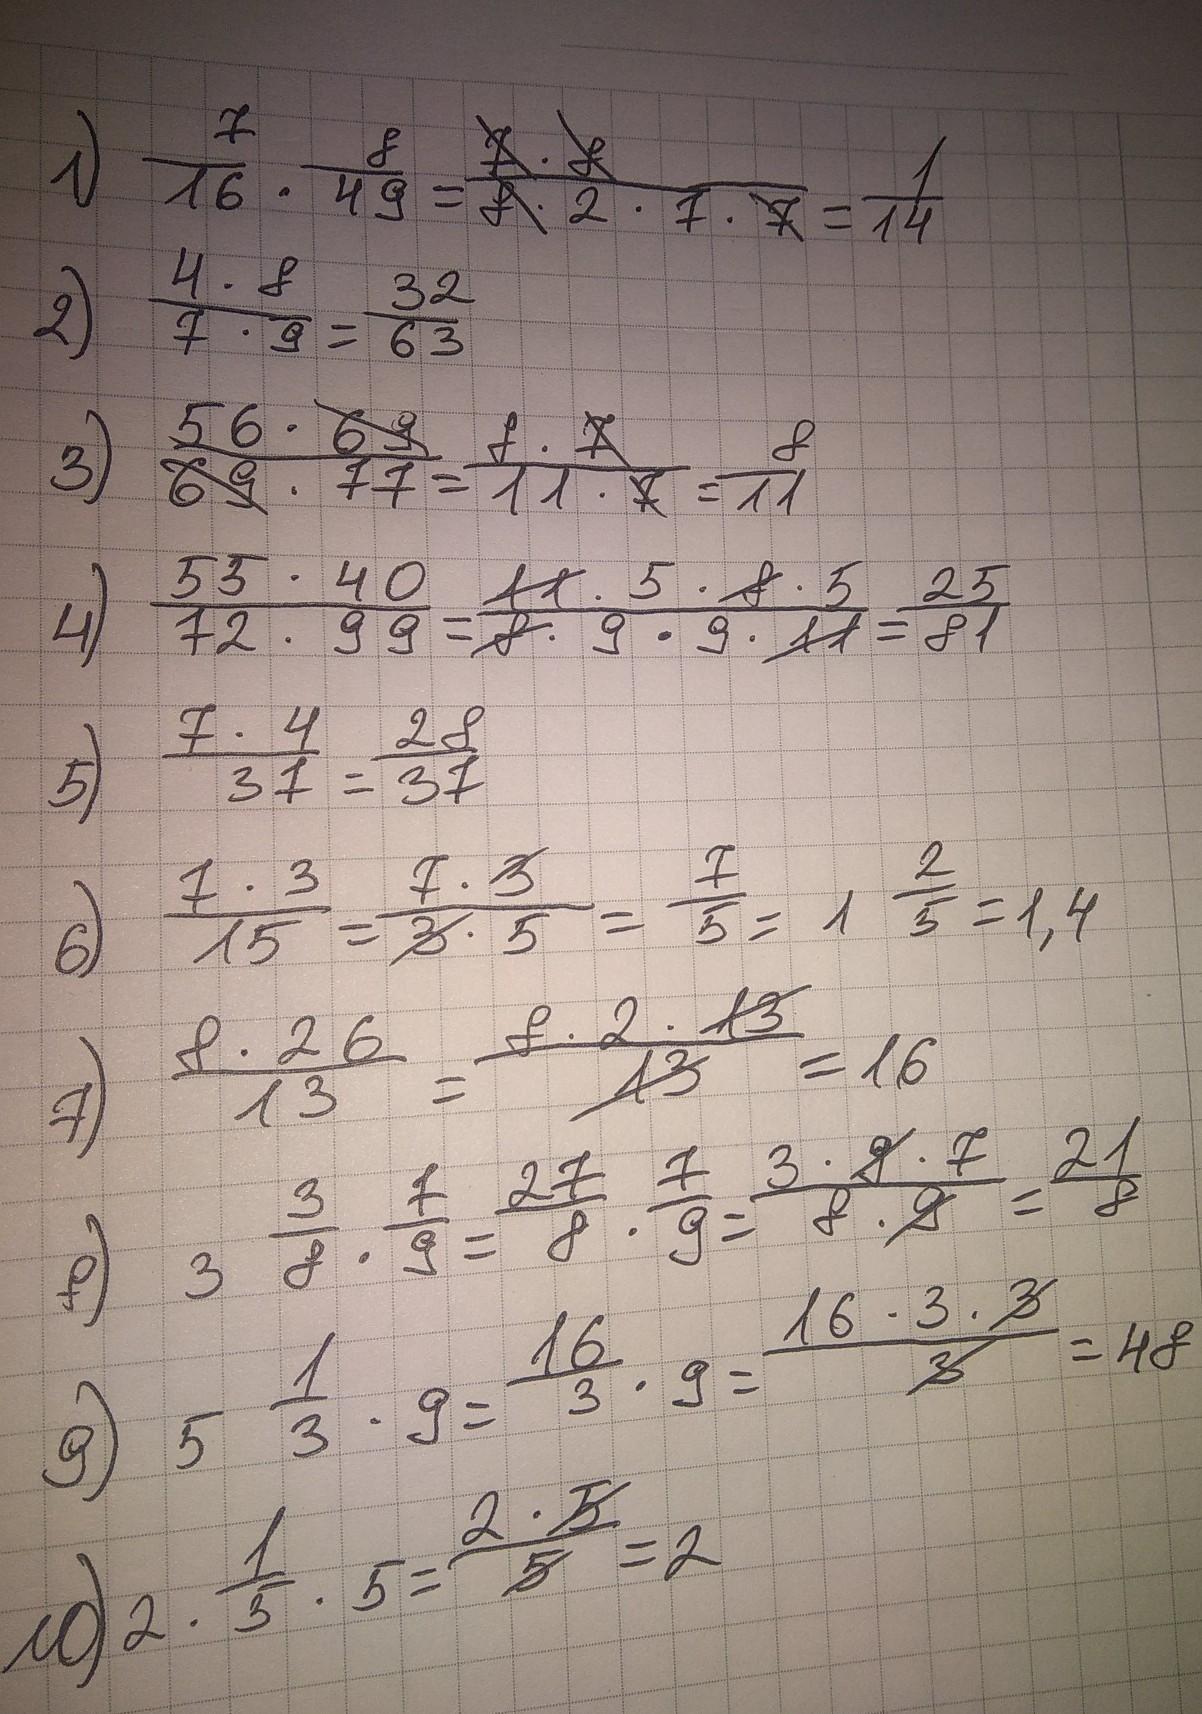 1) 7/16 · 8/49 = 7 · 8 / 8 · 2 · 7 · 7 = 1/14
2) 4 · 8 / 7 · 9 = 32/63
3) 56 · 69 / 69 · 77 = 8 · 7 / 11 · 7 = 8/11
4) 55 · 40 / 72 · 99 = 11 · 5 · 8 · 5 / 8 · 9 · 9 · 11 = 25/81
5) 7 · 4 / 37 = 28/37
6) 7 · 3 / 15 = 7 · 3 / 3 · 5 = 7/5 = 1 2/5 = 1,4
7) 8 · 26 / 13 = 8 · 2 · 13 / 13 = 16
8) 3 3/8 · 7/9 = 27/8 · 7/9 = 3 · 9 · 7 / 8 · 9 = 21/8
9) 5 1/3 · 9 = 16/3 · 9 = 16 · 3 · 3 / 3 = 48
10) 2 · 1/5 · 5 = 2 · 5 / 5 = 2